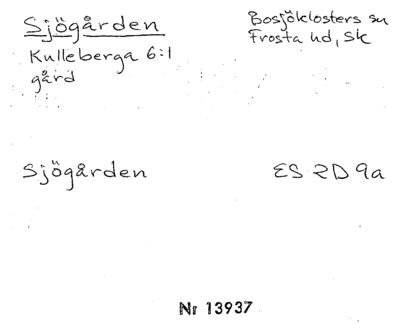 Sjögården
Bosjöklosters sn
Kulleberga 6:1
Frosta hd, Sk
gård
Sjögården
ES 2D 9a
Nr 13937